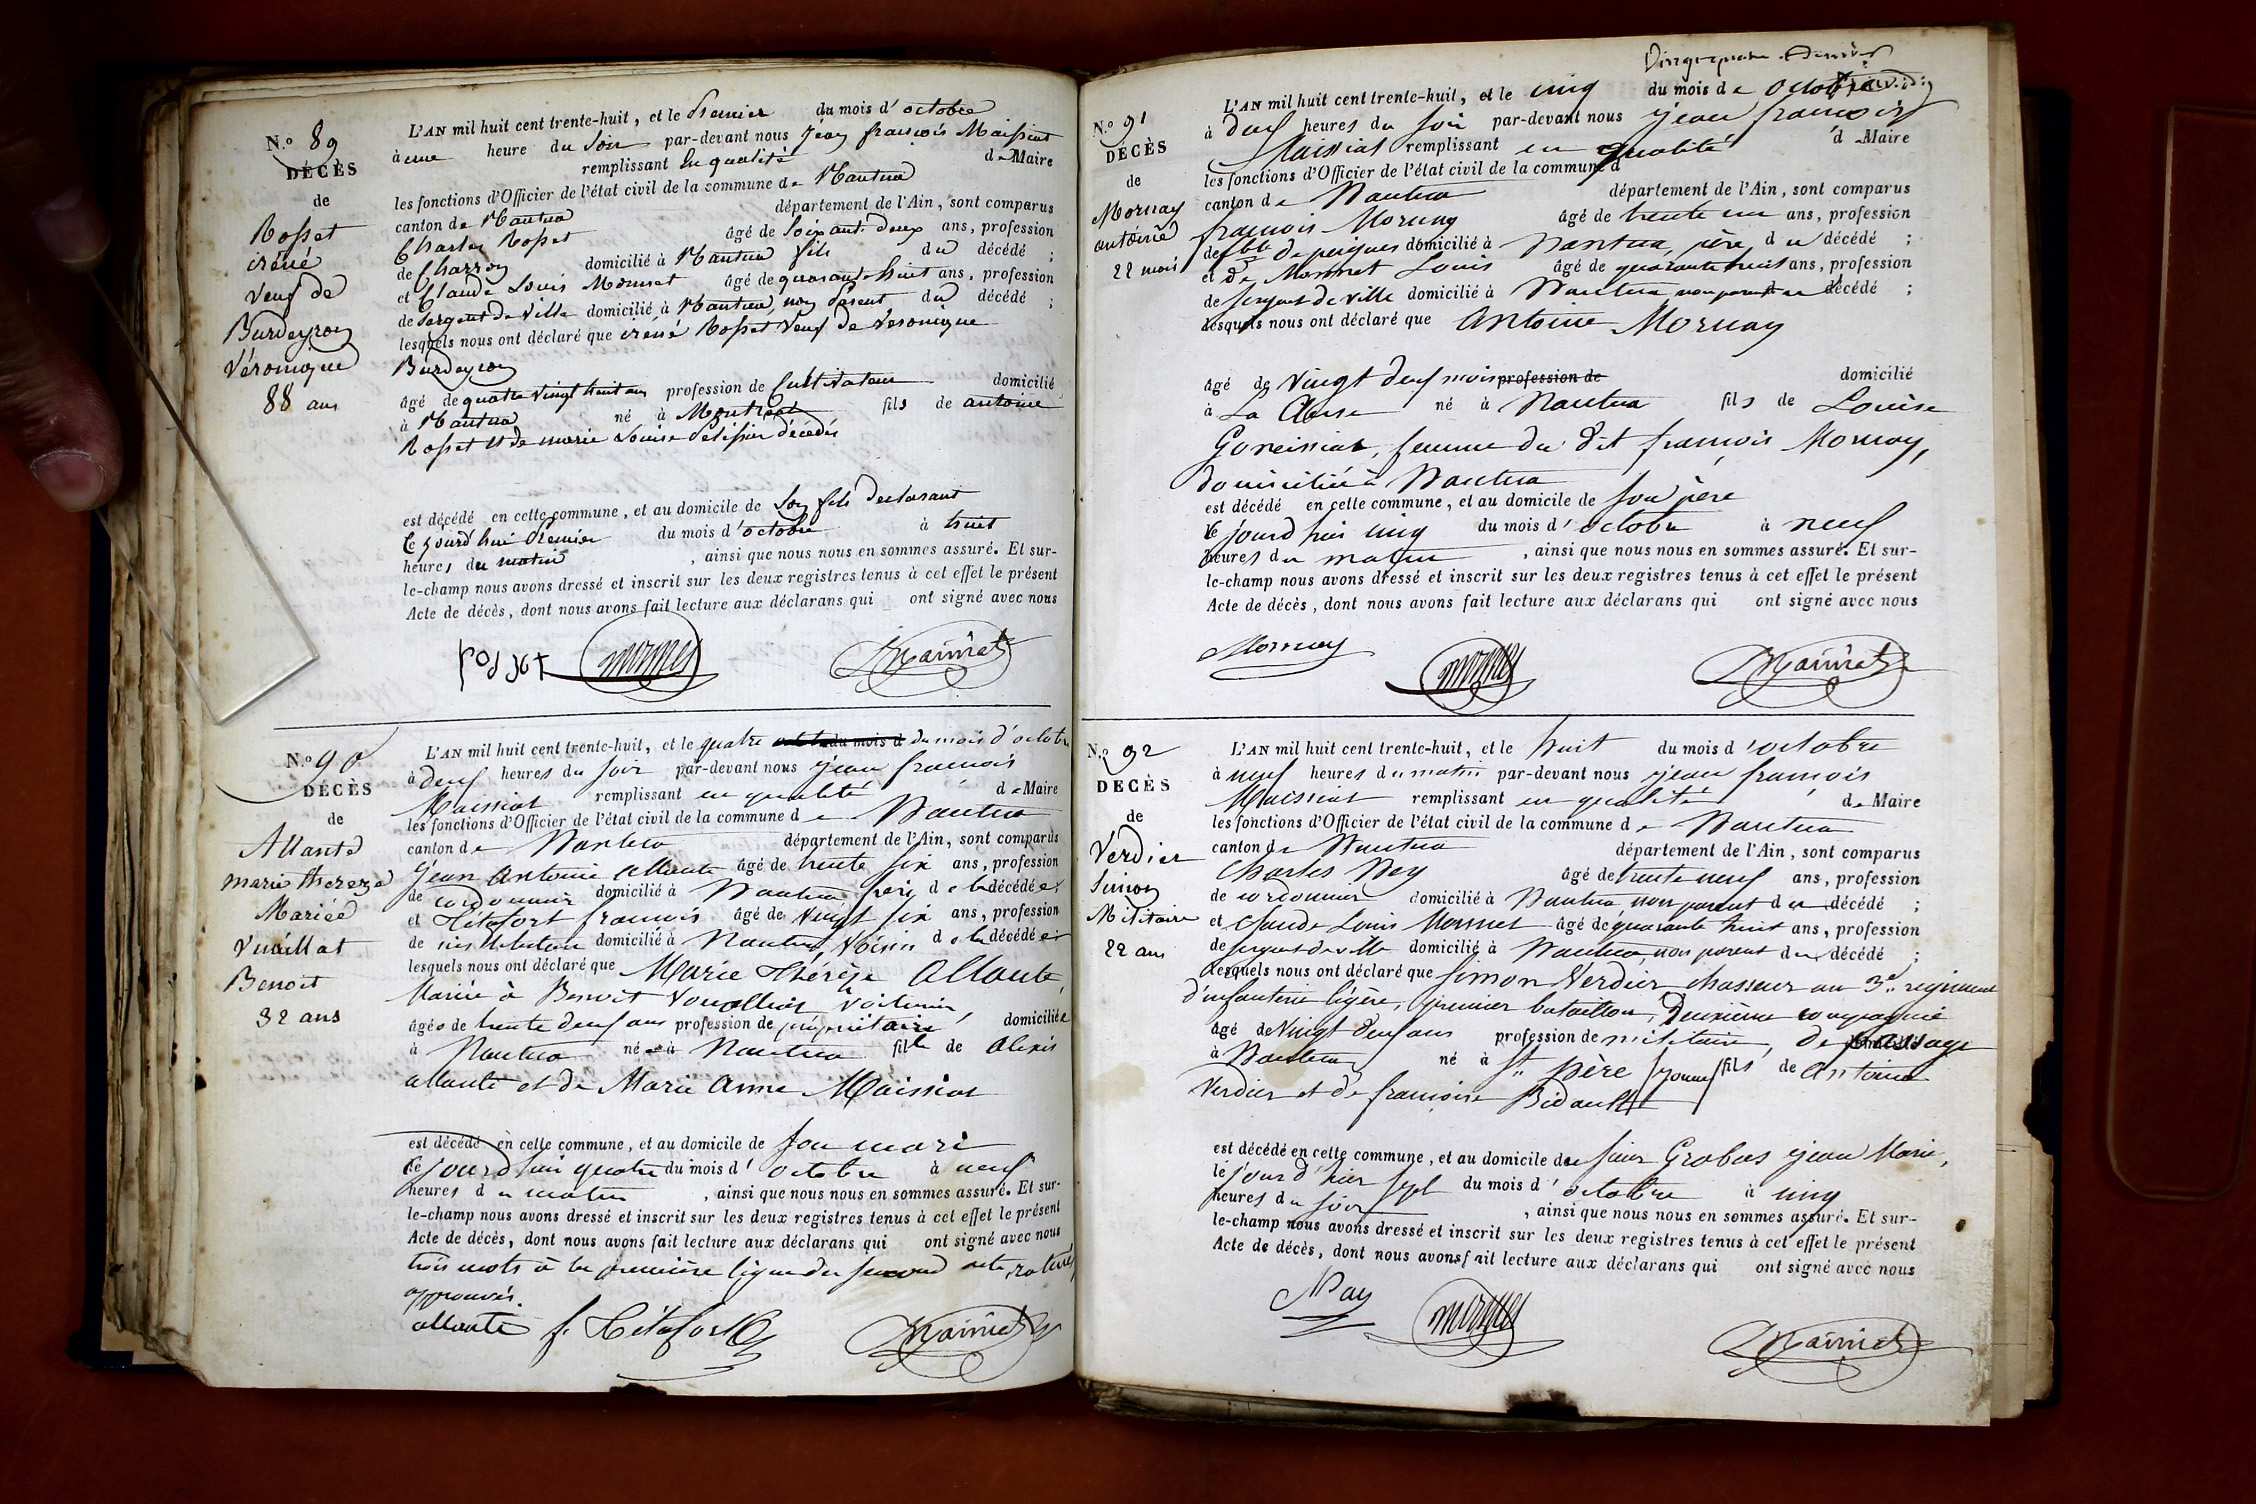 N.º 89
DÉCÈS
de
Rosset
iréné
Veuf de
Burdeyron
Véronique
88 ans
L'AN mil huit cent trente-huit, et le Premier du mois d'octobre
à une heure du Soir par-devant nous Jean françois Maissiat
remplissant En qualité de Maire
les fonctions d'Officier de l'état civil de la commune de Nantua
canton de Nantua département de l'Ain, sont comparus
Charles Rosset âgé de Soixante deux ans, profession
de Charron domicilié à Nantua fils du décédé ;
et Claude Louis Monnet âgé de quarante huit ans, profession
de Sergent de Ville domicilié à Nantua, non parent du décédé ;
lesquels nous ont déclaré que iréné Rosset Veuf de Veronique
Burdeyron
âgé de quatre vingt huit ans profession de Cultivateur domicilié
à Nantua né à Montréal fils de antoine
Rosset et de marie Louise Pelissier décédés
est décédé en cette commune, et au domicile de Son fils déclarant
le jourd'hui Premier du mois d'octobre à huit
heures du matin, ainsi que nous nous en sommes assuré. Et sur-
le-champ nous avons dressé et inscrit sur les deux registres tenus à cet effet le présent
Acte de décès, dont nous avons fait lecture aux déclarans qui ont signé avec nous
rosset monnet Maissiat
N.º 90
DÉCÈS
de
Allante
marie thereze
Mariée
Vuaillat
Benoit
32 ans
L'AN mil huit cent trente-huit, et le quatre du mois d du mois d'octobre
à deux heures du soir par-devant nous jean françois
Maissiat remplissant en qualité de Maire
les fonctions d'Officier de l'état civil de la commune de Nantua
canton de Nantua département de l'Ain, sont comparus
Jean Antoine allante âgé de trente six ans, profession
de cordonnier domicilié à Nantua frère de la décédée
et Hétafort françois âgé de vingt six ans, profession
de instituteur domicilié à Nantua, Voisin de la décédée
lesquels nous ont déclaré que Marie Thérèse Allante,
Mariée à Benoit Vouaillat, voiturier,
âgée de trente deux ans profession de propriétaire, domiciliée
à Nantua née à Nantua fille de Alexis
allante et de Marie Anne Maissiat
est décédé en cette commune, et au domicile de son mari
le jourd'hui quatre du mois d'octobre à neuf
heures du matin, ainsi que nous nous en sommes assuré. Et sur-
le-champ nous avons dressé et inscrit sur les deux registres tenus à cet effet le présent
Acte de décès, dont nous avons fait lecture aux déclarans qui ont signé avec nous
trois mots à la première ligne du second acte, raturés
approuvés.
allante f. Hétafort Maissiat
N.º 91
DÉCÈS
de
Mornay
antoine
22 mois
L'AN mil huit cent trente-huit, et le cinq du mois de octobre
à deux heures du soir par-devant nous jean françois
Maissiat remplissant en qualité de Maire
les fonctions d'Officier de l'état civil de la commune d
canton de Nantua département de l'Ain, sont comparus
françois Mornay âgé de trente un ans, profession
de fbt de peignes domicilié à Nantua, père du décédé ;
et de Monnet Louis âgé de quarante huit ans, profession
de sergent de ville domicilié à Nantua non parent du décédé ;
lesquels nous ont déclaré que Antoine Mornay
âgé de Vingt deux mois profession de domicilié
à La Cluse né à Nantua fils de Louise
Goneissiat, femme du dit françois Mornay,
domiciliée à Nantua
est décédé en cette commune, et au domicile de son père
le jourd'hui cinq du mois d'octobre à neuf
heures du matin, ainsi que nous nous en sommes assuré. Et sur-
le-champ nous avons dressé et inscrit sur les deux registres tenus à cet effet le présent
Acte de décès, dont nous avons fait lecture aux déclarans qui ont signé avec nous
Mornay monnet Maissiat
N.º 92
DÉCÈS
de
Verdier
Simon
Militaire
22 ans
L'AN mil huit cent trente-huit, et le huit du mois d'octobre
à neuf heures du matin par-devant nous jean françois
Maissiat remplissant en qualité de Maire
les fonctions d'Officier de l'état civil de la commune de Nantua
canton de Nantua département de l'Ain, sont comparus
Charles Ney âgé de trente neuf ans, profession
de cordonnier domicilié à Nantua non parent du décédé ;
et Claude Louis Monnet âgé de quarante huit ans, profession
de sergent de ville domicilié à Nantua, non parent du décédé ;
lesquels nous ont déclaré que Simon Verdier chasseur au 3e. régiment
d'infanterie légère, premier bataillon, Deuxième compagnie
âgé de Vingt deux ans profession de militaire, de passage
à Nantua né à St. père (yonne) fils de Antoine
Verdier et de françoise Bidault
est décédé en cette commune, et au domicile du sieur Grobas jean Marie,
le jour d'hier sept du mois d'octobre à cinq
heures du soir, ainsi que nous nous en sommes assuré. Et sur-
le-champ nous avons dressé et inscrit sur les deux registres tenus à cet effet le présent
Acte de décès, dont nous avons fait lecture aux déclarans qui ont signé avec nous
Nay monnet Maissiat